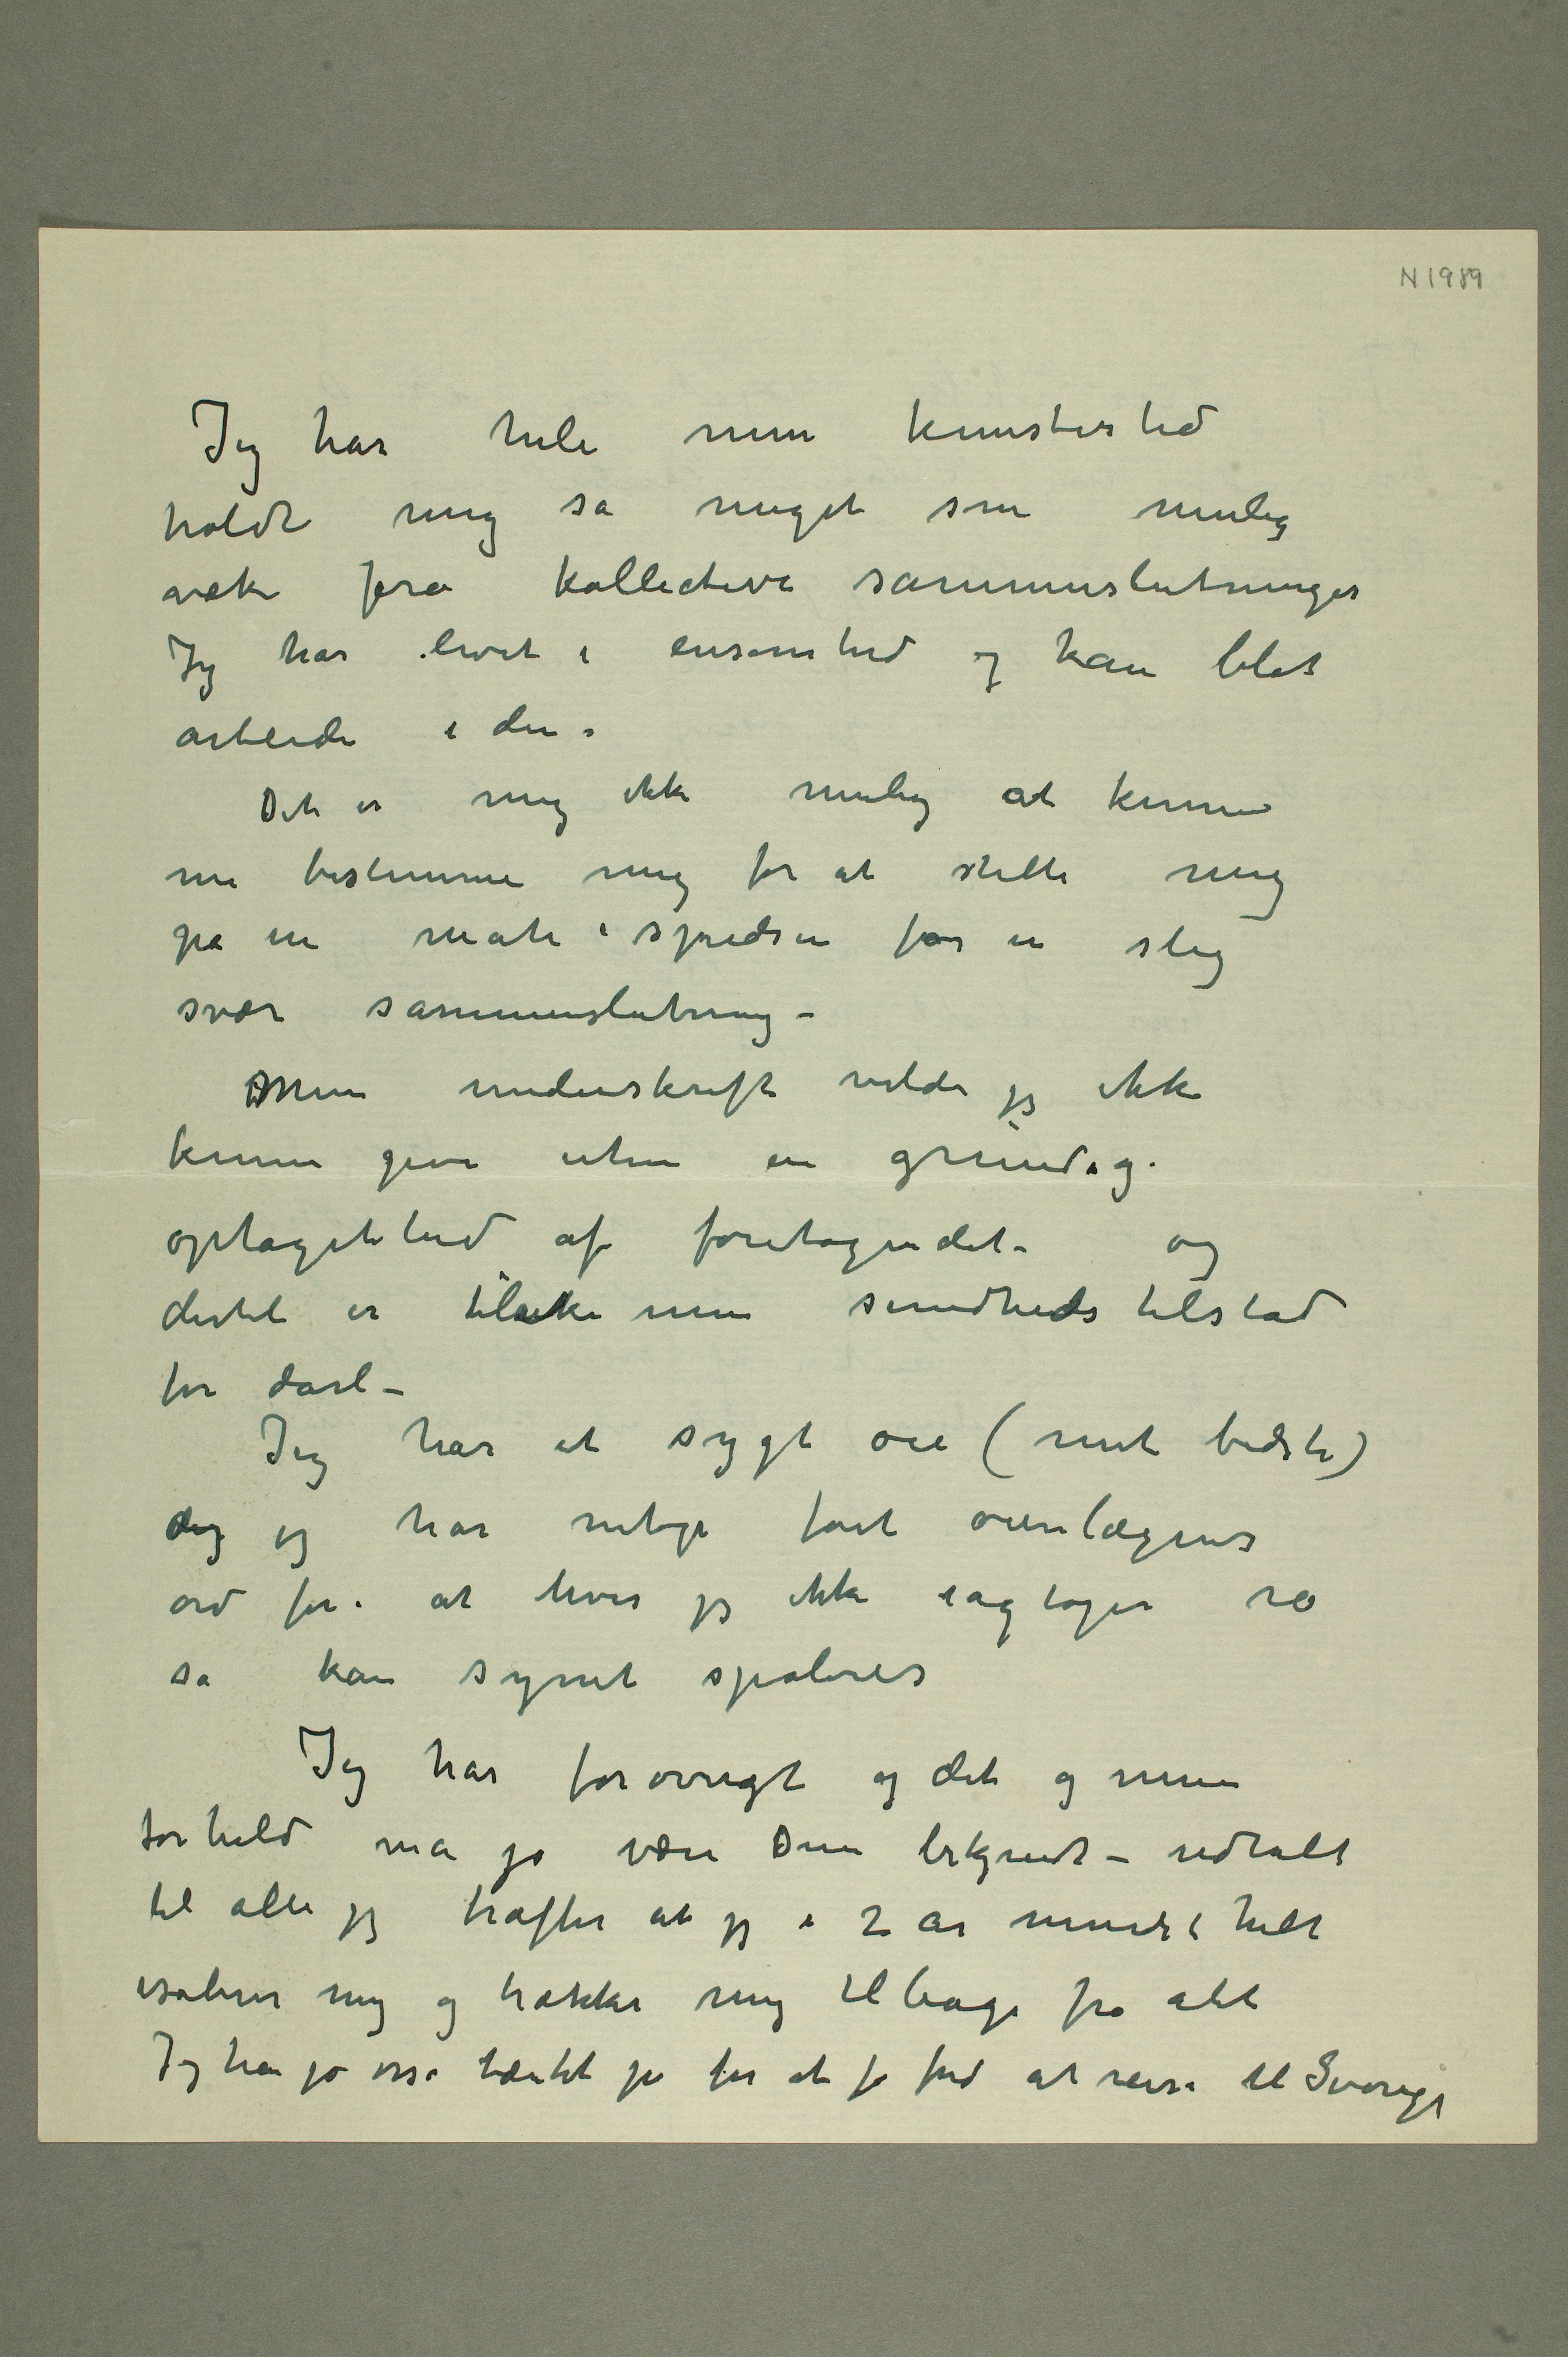 N 1989
Jeg har hele min kunstertid
holdt mig så meget som mulig
væk fra kollective sammenslutninger
Jeg har levet i ensomhed og kan blot
arbeide i den.
Det er mig ikke mulig at kunne
nu bestemme mig for at stille mig
på en måte i spidsen for en slig
svær sammenslutning –
Min underskrift vilde jeg ikke
kunne give uten en grundig
optagethed af foretagendet – og
dertil er tilike min sundhedstilstad
for dårl –
Jeg har et sygt øie (mit bedste)
og jeg har netop fået øienlægens
ord for at hvis jeg ikke iagtager ro
så kan synet spoleres
Jeg har forøvrigt og det og mine
forhold må jo være Dem bekjendt – udtalt
til alle jeg træffer at jeg i 2 år mindst helt
isolerer mig og trækker mig tilbage fra alt
Jeg har jo også tænkt på for at få fred at reise til Sverige